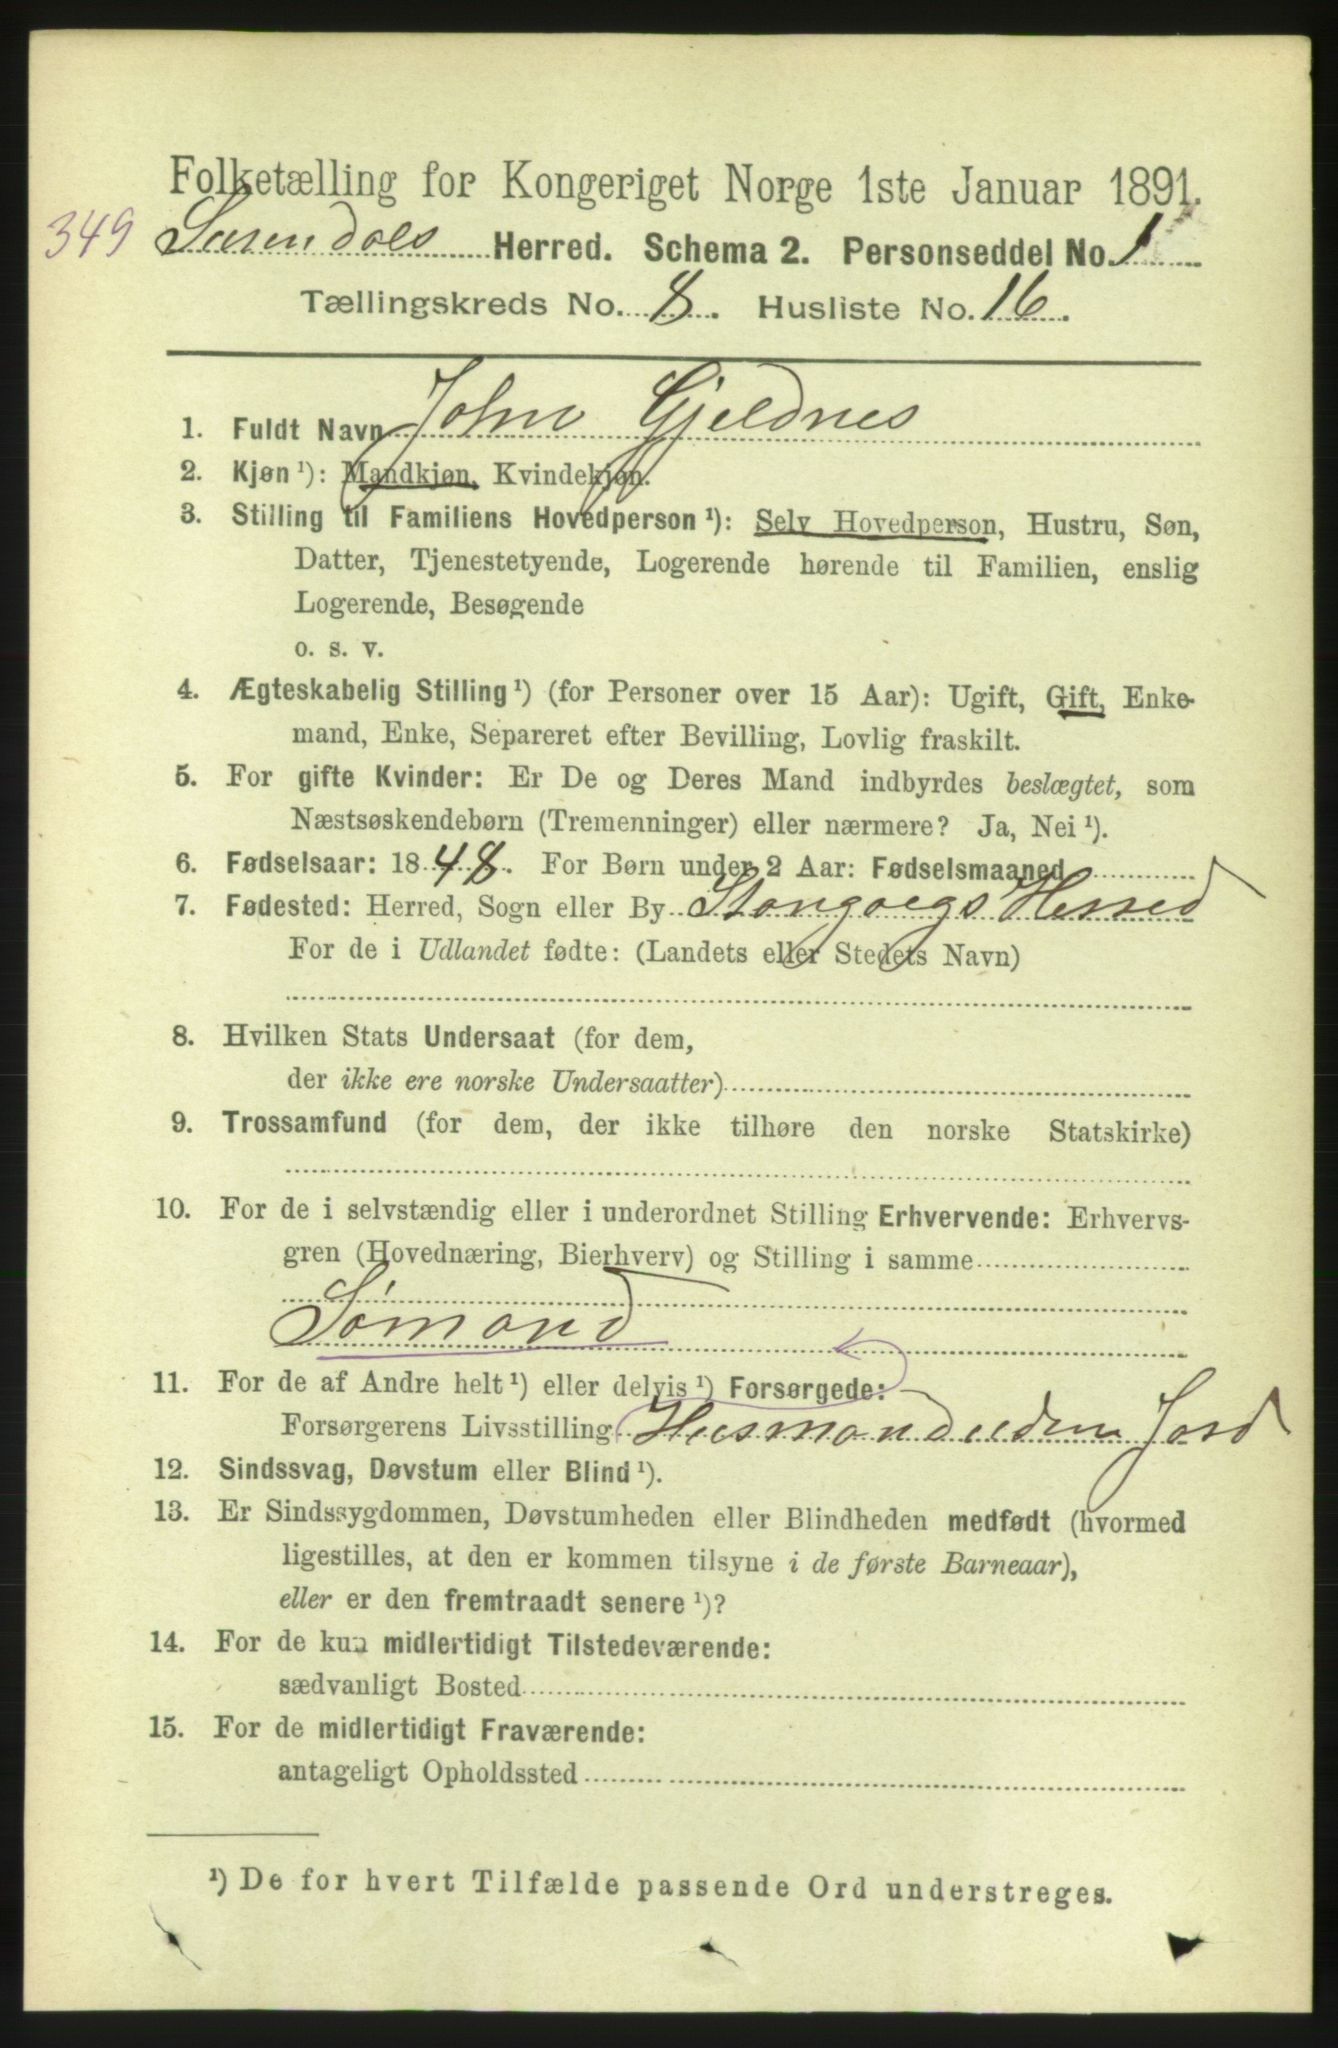 Folketælling for Kongeriget Norge 1ste Januar 1891.
349 Surendals Herred. Schema 2. Personseddel No. 1
Tællingskreds No. 8. Husliste No. 16.
1. Fuldt Navn John Gjeldnes
2. Kjøn ¹): Mandkjøn, Kvindekjøn.
3. Stilling til Familiens Hovedperson ¹): Selv Hovedperson, Hustru, Søn,
Datter, Tjenestetyende, Logerende hørende til Familien, enslig
Logerende, Besøgende
o. s. v.
4. Ægteskabelig Stilling ¹) (for Personer over 15 Aar): Ugift, Gift, Enke-
mand, Enke, Separeret efter Bevilling, Lovlig fraskilt.
5. For gifte Kvinder: Er De og Deres Mand indbyrdes beslægtet, som
Næstsøskendebørn (Tremenninger) eller nærmere? Ja, Nei ¹).
6. Fødselsaar: 1848. For Børn under 2 Aar: Fødselsmaaned
7. Fødested: Herred, Sogn eller By Stangvigs Herred
For de i Udlandet fødte: (Landets eller Stedets Navn)
8. Hvilken Stats Undersaat (for dem,
der ikke ere norske Undersaatter)
9. Trossamfund (for dem, der ikke tilhøre den norske Statskirke)
10. For de i selvstændig eller i underordnet Stilling Erhvervende: Erhvervs-
gren (Hovednæring, Bierhverv) og Stilling i samme
Sømand
11. For de af Andre helt ¹) eller delvis ¹) Forsørgede:
Forsørgerens Livsstilling Husmand uden Jord
12. Sindssvag, Døvstum eller Blind ¹).
13. Er Sindssygdommen, Døvstumheden eller Blindheden medfødt (hvormed
ligestilles, at den er kommen tilsyne i de første Barneaar),
eller er den fremtraadt senere ¹)?
14. For de kun midlertidigt Tilstedeværende:
sædvanligt Bosted
15. For de midlertidigt Fraværende:
antageligt Opholdssted
¹) De for hvert Tilfælde passende Ord understreges.